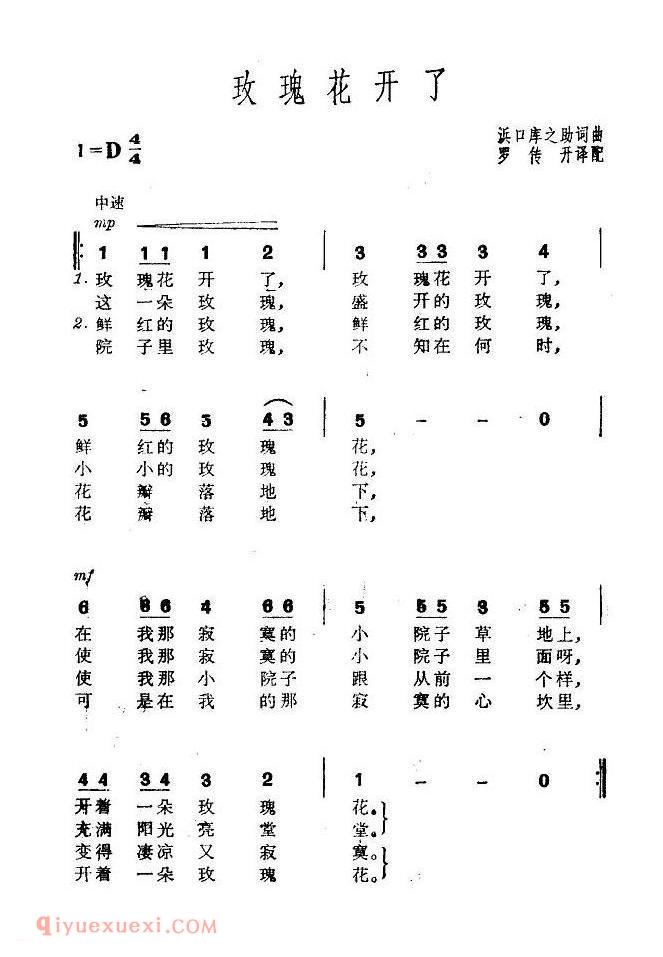 玫瑰花开了
浜口库之助词曲
1=D 4/4
罗传开译配
中速
mp
1 1 1 1 2 | 3 3 3 3 4 |
1. 玫 瑰花 开 了, 玫 瑰花 开 了,
这 一朵 玫 瑰, 盛 开的 玫 瑰,
2. 鲜 红的 玫 瑰, 鲜 红的 玫 瑰,
院 子里 玫 瑰, 不 知在 何 时,
5 5 6 5 4 3 | 5 - - 0 |
鲜 红的 玫 瑰 花,
小 小的 玫 瑰 花,
花 瓣 落 地 下,
花 瓣 落 地 下,
mf
6 6 6 4 6 6 | 5 5 5 3 5 5 |
在 我那 寂 寞的 小 院子 草 地上,
使 我那 寂 寞的 小 院子 里 面呀,
使 我那 小 院子 跟 从前 一 个样,
可 是在 我 的那 寂 寞的 心 坎里,
4 4 3 4 3 2 | 1 - - 0 :|
开着 一朵 玫 瑰 花。
充满 阳光 亮 堂 堂。
变得 凄凉 又 寂 寞。
开着 一朵 玫 瑰 花。
qiyuexuexi.com